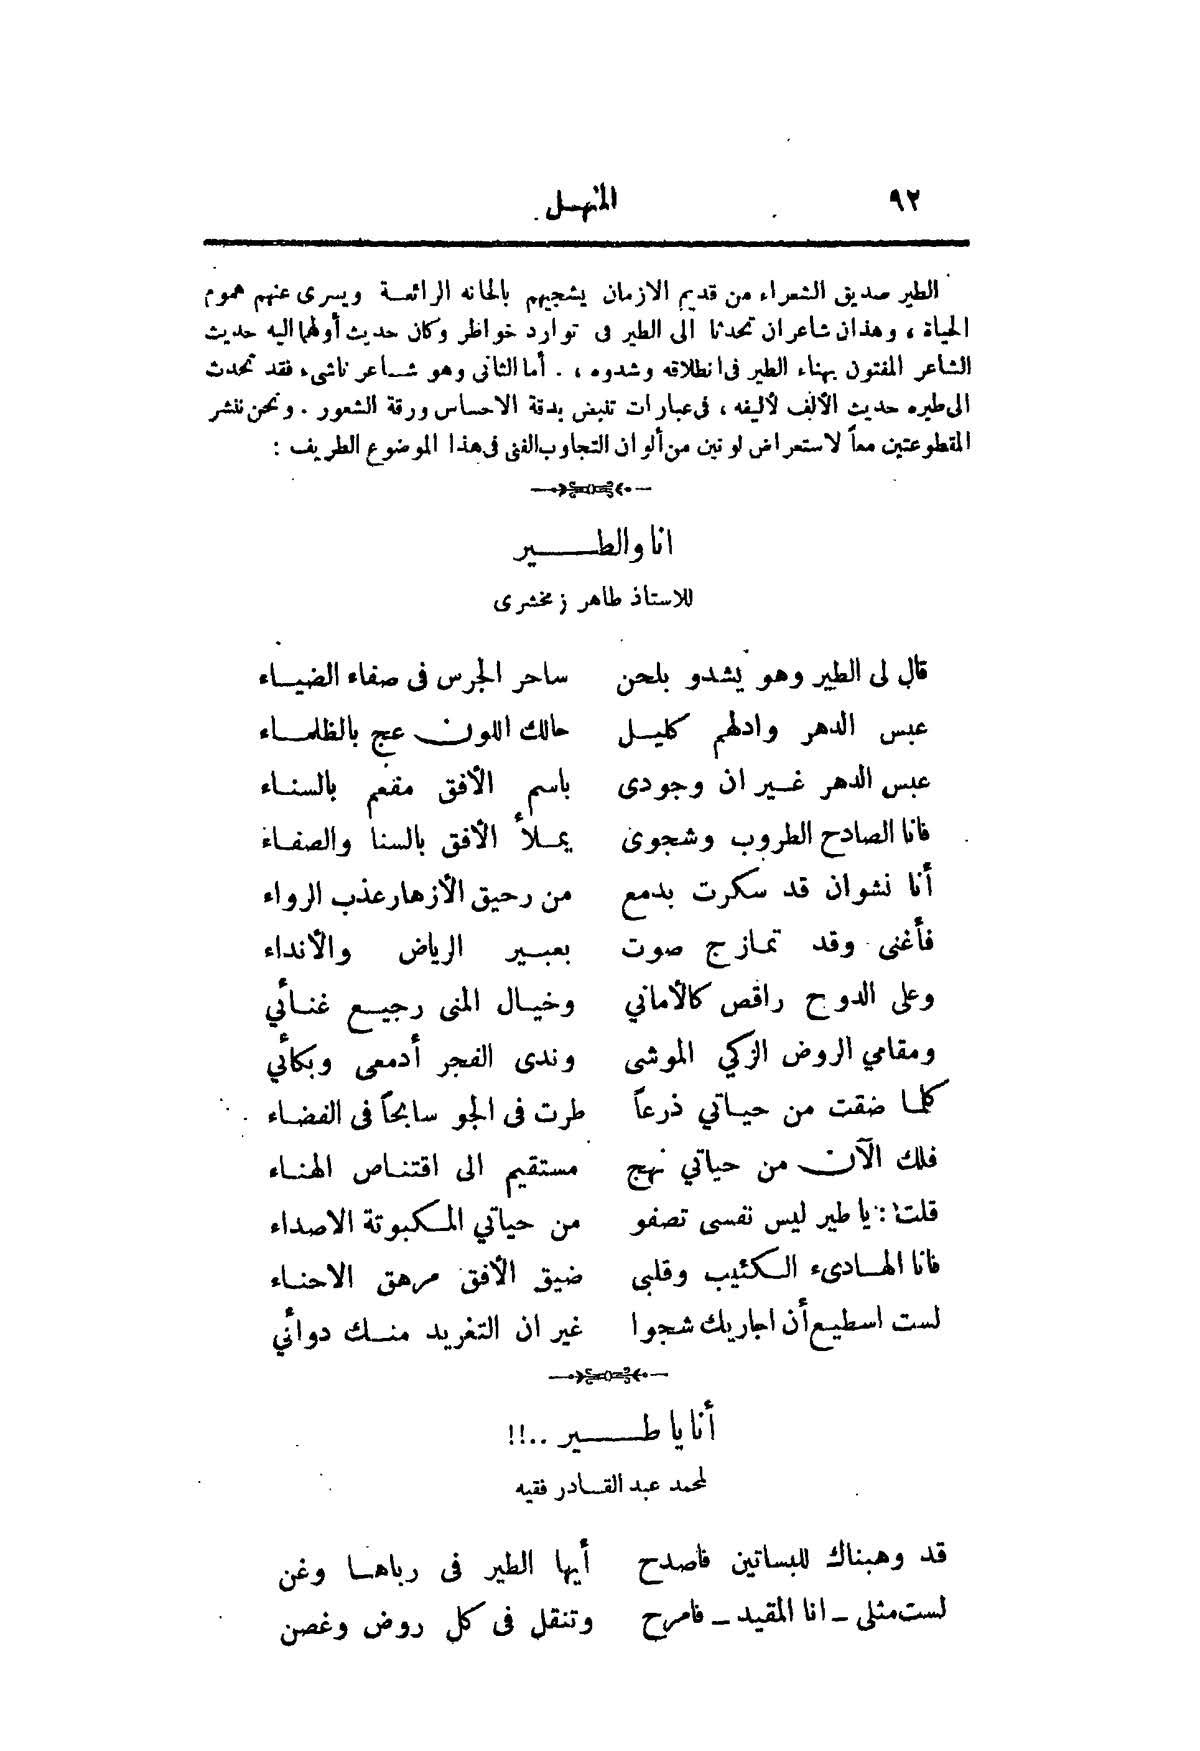 ٩٢ المنهل
الطير صديق الشعراء من قديم الازمان يشجيهم بالحانه الرائعة ويسرى عنهم هموم
الحياة ، وهذان شاعران تحدثا الى الطير فى توارد خواطر وكان حديث أولهما اليه حديث
الشاعر المفتون بهناء الطير فى انطلاقه وشدوه ، . أما الثانى وهو شاعر ناشىء فقد تحدث
الى طيره حديث الألف لأليفه ، فى عبارات تنبض بدقة الاحساس ورقة الشعور . ونحن ننشر
المقطوعتين معاً لاستعراض لونين من ألوان التجاوب الفنى فى هذا الموضوع الطريف :
انا والطير
للاستاذ طاهر زمخشرى
قال لى الطير وهو يشدو بلحن ساحر الجرس فى صفاء الضياء
عبس الدهر وادلهم كليل حالك اللون عج بالظلماء
عبس الدهر غير ان وجودى باسم الأفق مفعم بالسناء
فانا الصادح الطروب وشجوى يملأ الأفق بالسنا والصفاء
أنا نشوان قد سكرت بدمع من رحيق الأزهار عذب الرواء
فأغنى وقد تمازج صوت بعبير الرياض والأنداء
وعلى الدوح راقص كالأماني وخيال المنى رجيع غنائي
ومقامي الروض الزكي الموشى وندى الفجر أدمعى وبكائي
كلما ضقت من حياتي ذرعاً طرت فى الجو سابحاً فى الفضاء
فلك الآن من حياتي نهج مستقيم الى اقتناص الهناء
قلت : يا طير ليس نفسى تصفو من حياتي المكبوتة الاصداء
فانا الهادىء الكئيب وقلبى ضيق الأفق مرهق الاحناء
لست اسطيع أن اجاريك شجوا غير ان التغريد منك دوائي
أنا يا طير ..!!
لمحمد عبد القادر فقيه
قد وهبناك للبساتين فاصدح أيها الطير فى رباها وغن
لست مثلى ـ انا المقيد ـ فامرح وتنقل فى كل روض وغصن